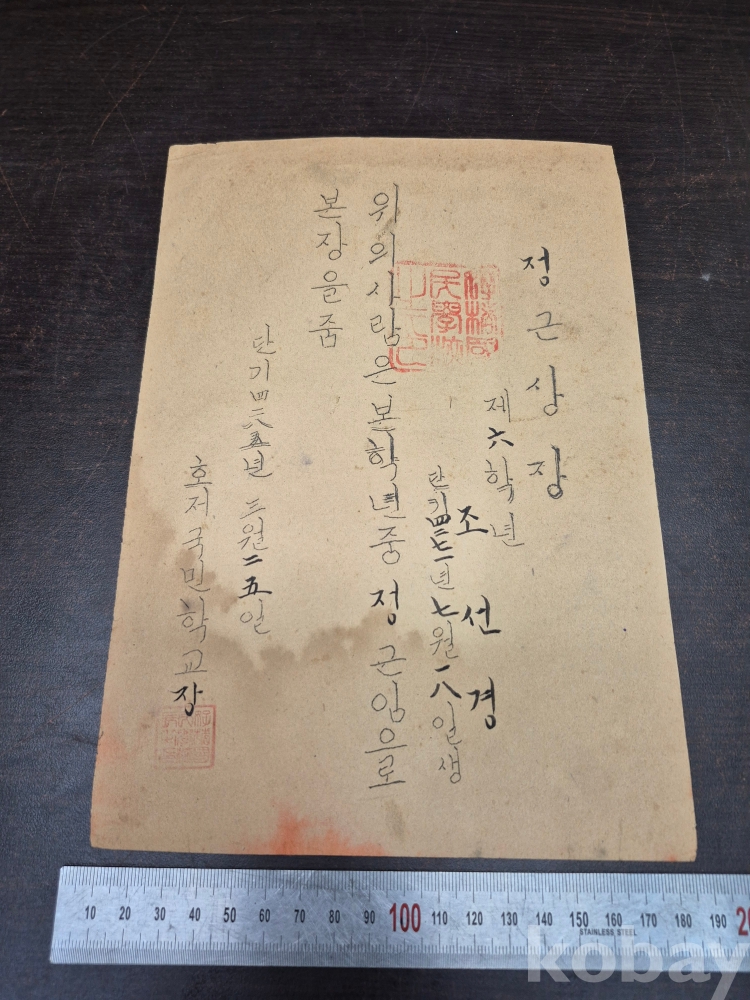 정근상장
제六학년
조선경
단기四二七一년七월一八일생
위의사람은본학년중정근임으로
본장을줌
단기四二八五년三월二五일
호저국민학교장
10 20 30 40 50 60 70 80 90 100 110 120 130 140 150 160 170 180 190
STAINLESS STEEL
kobay